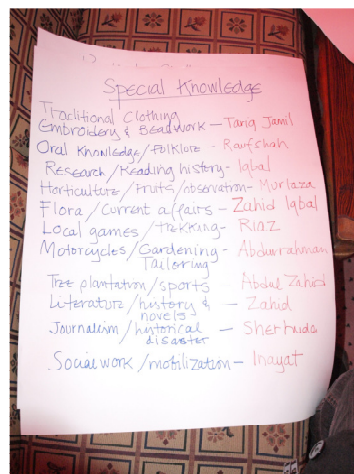 Special Knowledge
Traditional Clothing
Embroidery & Beadwork — Tariq Jamil
Oral Knowledge/Folklore - Raufshah
Research/Reading history - Iqbal
Horticulture/Fruits/observation - Murtaza
Flora/Current affairs - Zahid Iqbal
Local games/trekking - Riaz
Motorcycles/Gardening - Abdurrahman
Tailoring
Tree plantation/sports Abdul Zahid
Literature/history & — Zahid
novels
Journalism/historical — Sherhuda
disaster
Social work/mobilization — Inayat